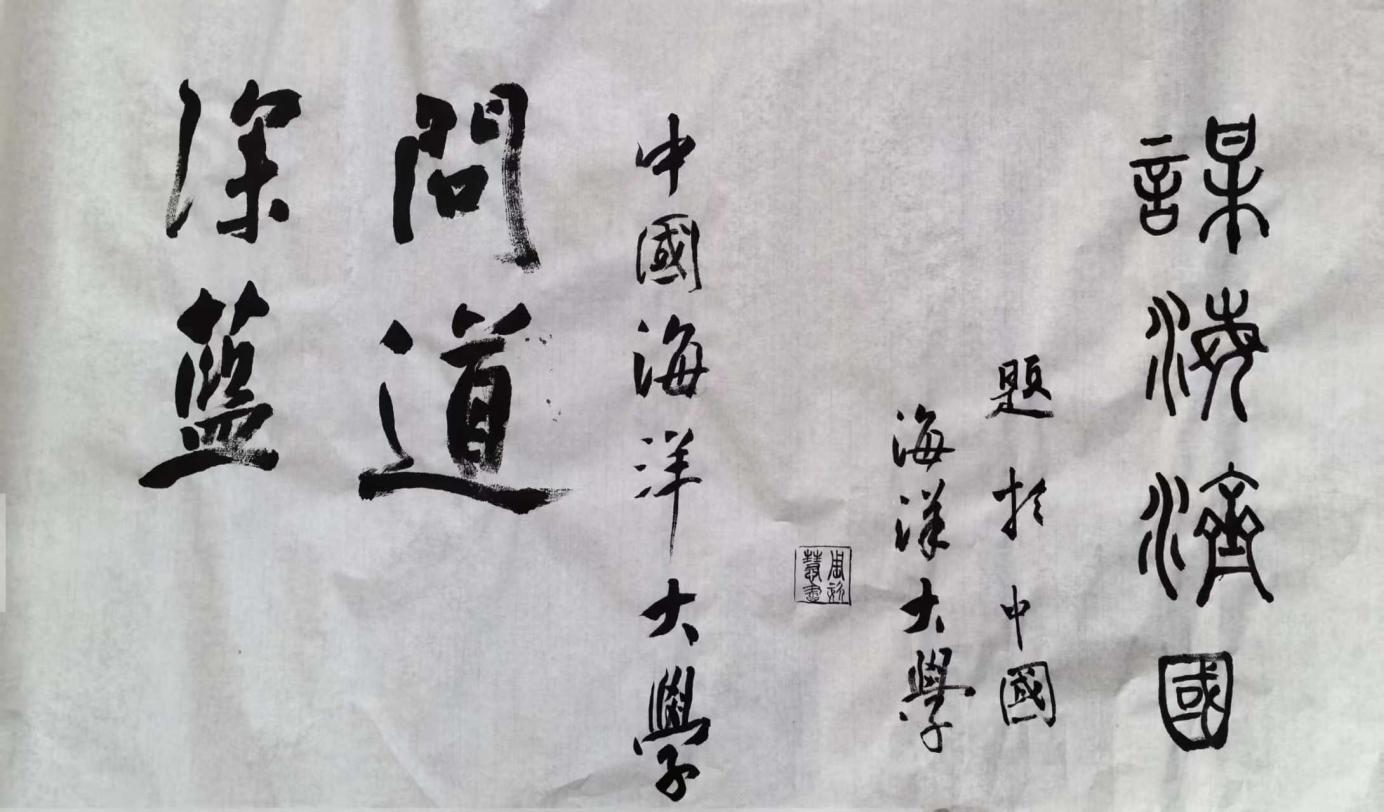 謀海濟國
題於中國
海洋大學
中國海洋大學
問道
深藍